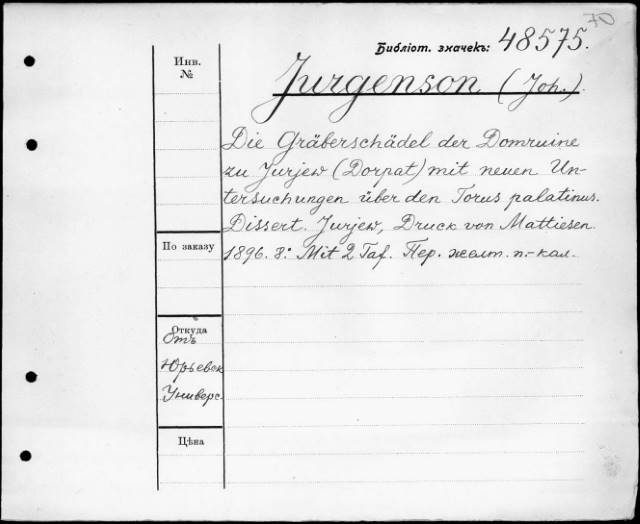 70
Библіот. значекъ: 48575.
Инв.
№
Jurgenson (Joh.).
Die Gräberschädel der Domruine
zu Jurjew (Dorpat) mit neuen Un-
tersuchungen über den Torus palatinus.
Dissert. Jurjew, Druck von Mattiesen.
1896. 8:° Mit 2 Taf. Пер. желт. п.-кал.
По заказу
Откуда
Отъ
Юрьевск
Универс.
Цѣна